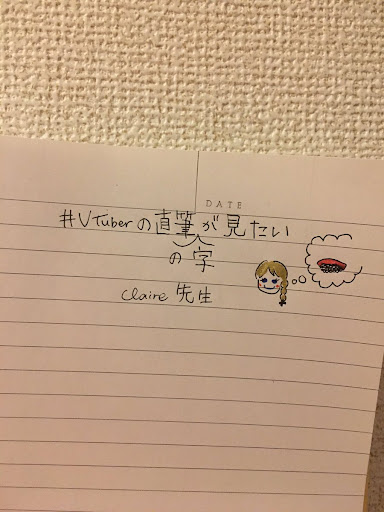 DATE
#VTuberの直筆が見たい
の字
claire 先生